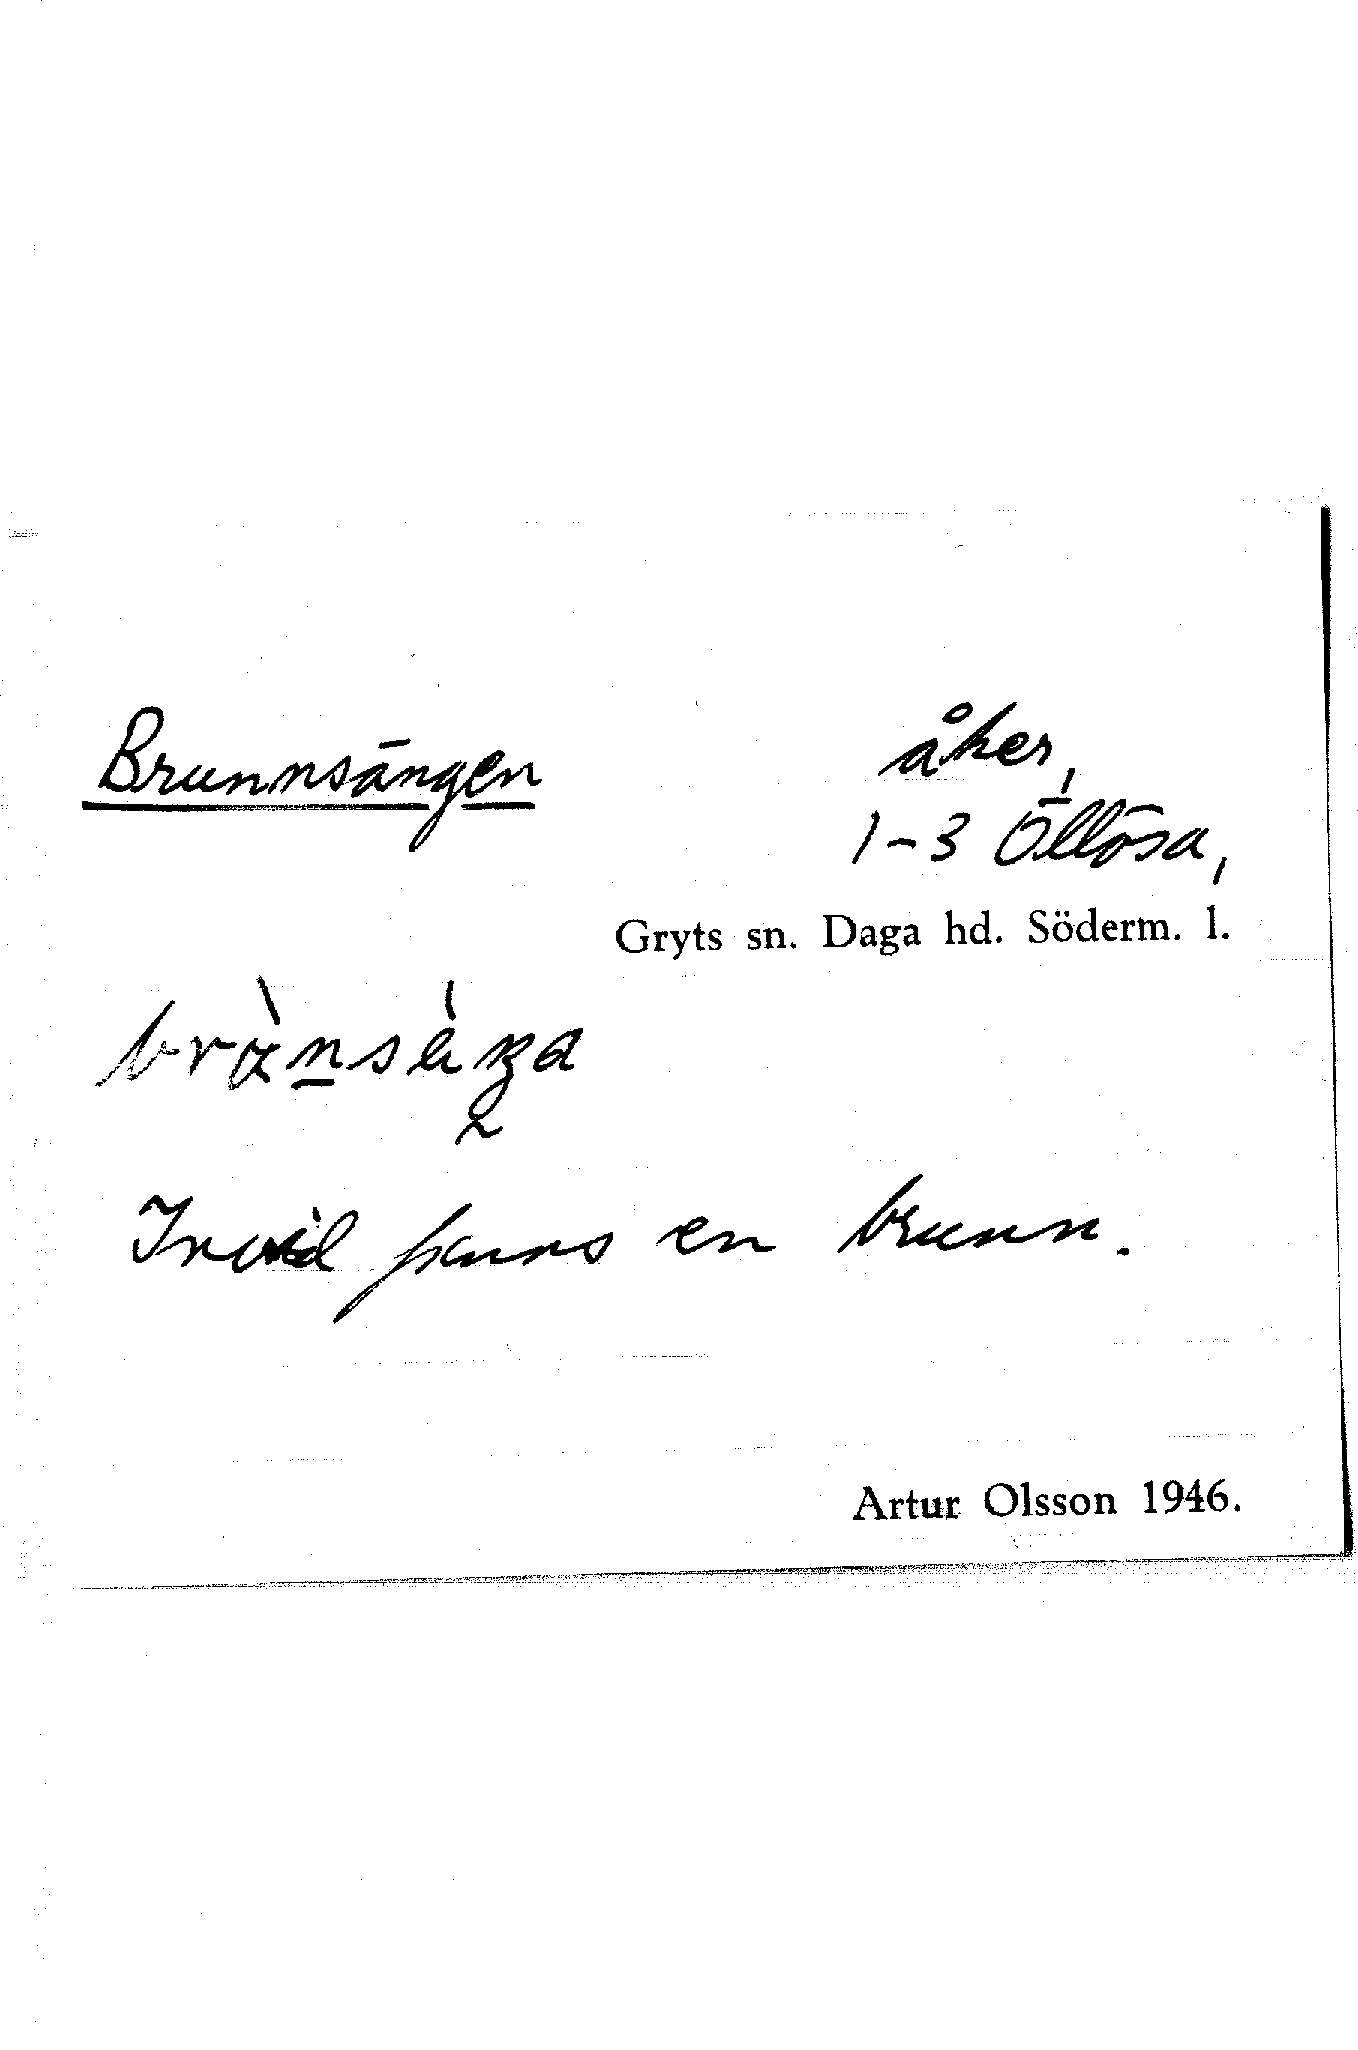 Brunnsängen
åker,
1-3 Öllösa,
Gryts sn. Daga hd. Söderm. l.
Invid fanns en brunn.
Artur Olsson 1946.